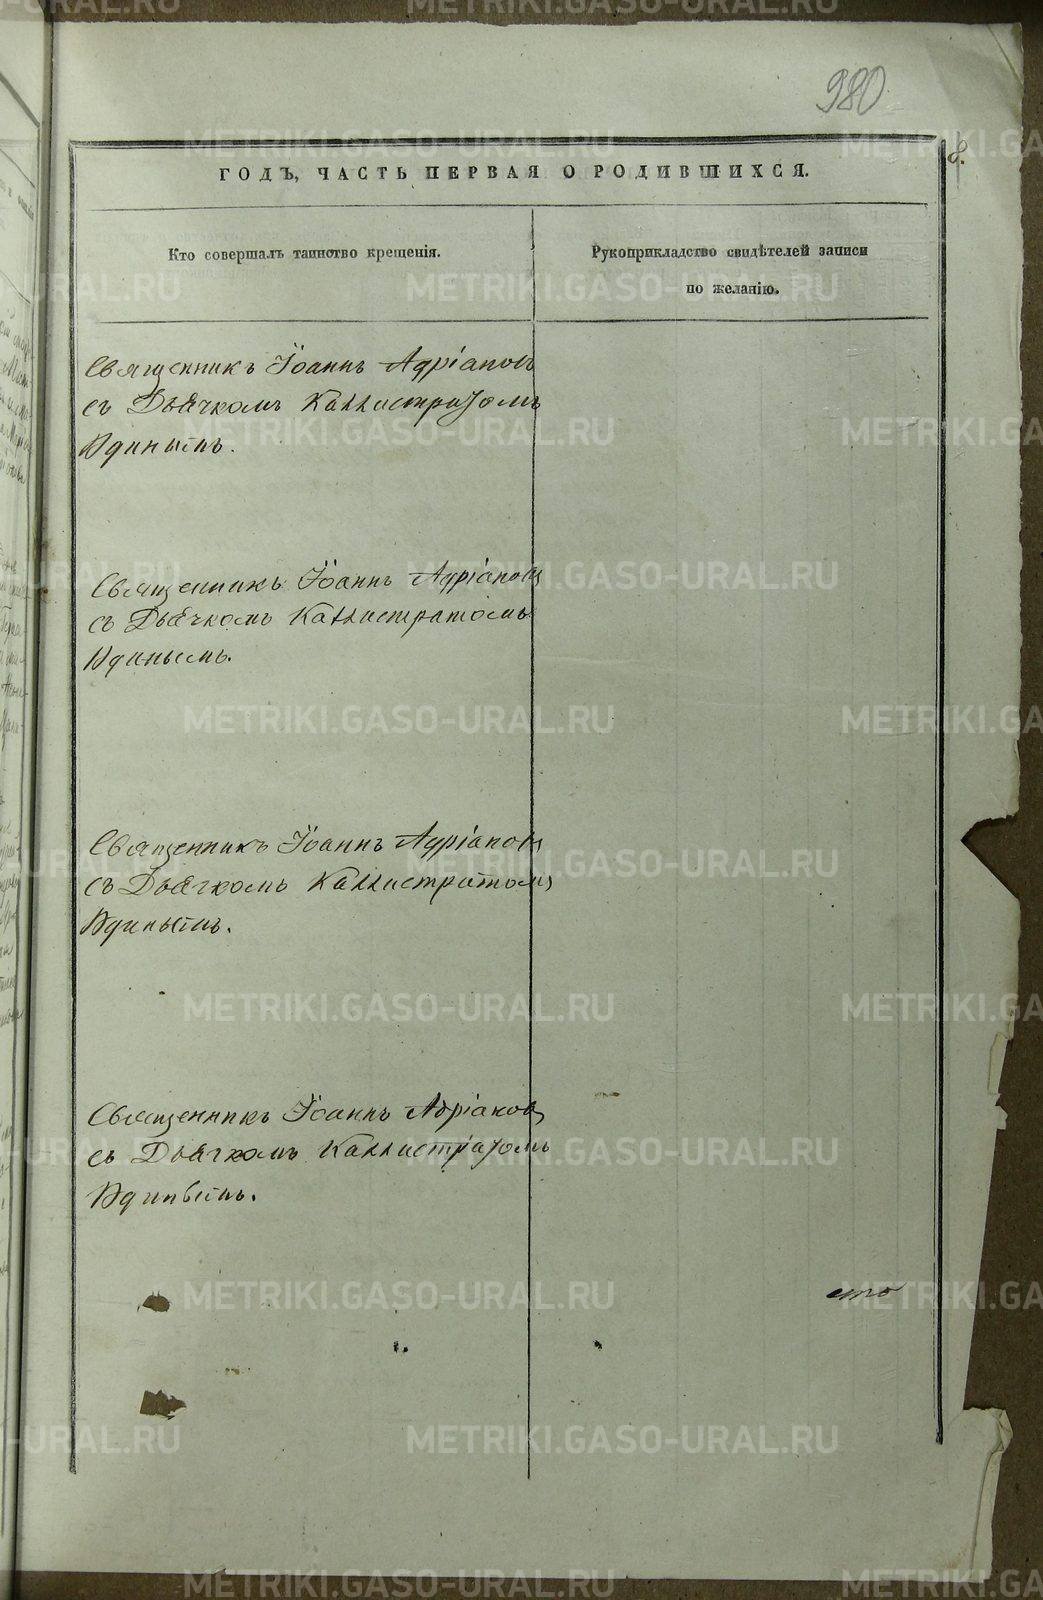 980
8.
ГОДЪ, ЧАСТЬ ПЕРВАЯ О РОДИВШИХСЯ.
Кто совершалъ таинство крещенія.
Рукоприкладство свидѣтелей записи
по желанію.
Священникъ Іоаннъ Адріановъ
съ Дьячкомъ Каллистратомъ
Ядинымъ.
Священникъ Іоаннъ Адріановъ
съ Дьячкомъ Каллистратомъ
Ядинымъ.
Священникъ Іоаннъ Адріановъ
съ Дьячкомъ Каллистратомъ
Ядинымъ.
Священникъ Іоаннъ Адріановъ
съ Дьячкомъ Каллистратомъ
Ядинымъ.
METRIKI.GASO-URAL.RU